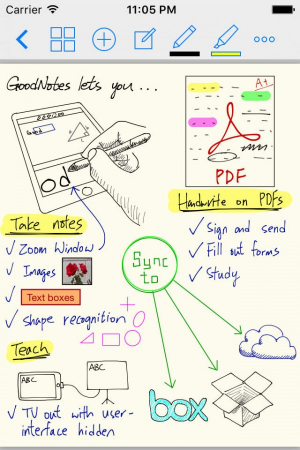 Carrier 11:05 PM
GoodNotes lets you...
A+
PDF
Handwrite on PDFs
✓ Sign and send
✓ Fill out forms
✓ Study
Take notes
✓ Zoom Window
✓ Images
✓ Text boxes
✓ Shape recognition
Sync
to
box
Teach
ABC
ABC
✓ TV out with user-
interface hidden